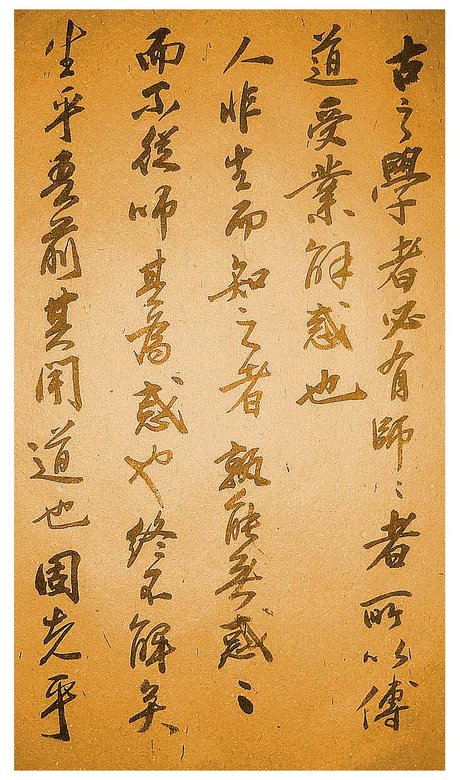 古之學者必有師〻者所以傳
道受業解惑也
人非生而知之者孰能無惑〻
而不從師其為惑也終不解矣
生乎吾前其聞道也固先乎